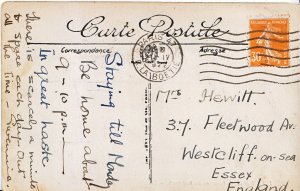 Carte Postale
Correspondance
Adresse
Staying till Monday
Be home about
9 - 10 p.m.
In great haste
there is scarcely a minute
to space each day out
all the time -
Mrs Hewitt
37. Fleetwood Av.
Westcliff-on-Sea
Essex
England